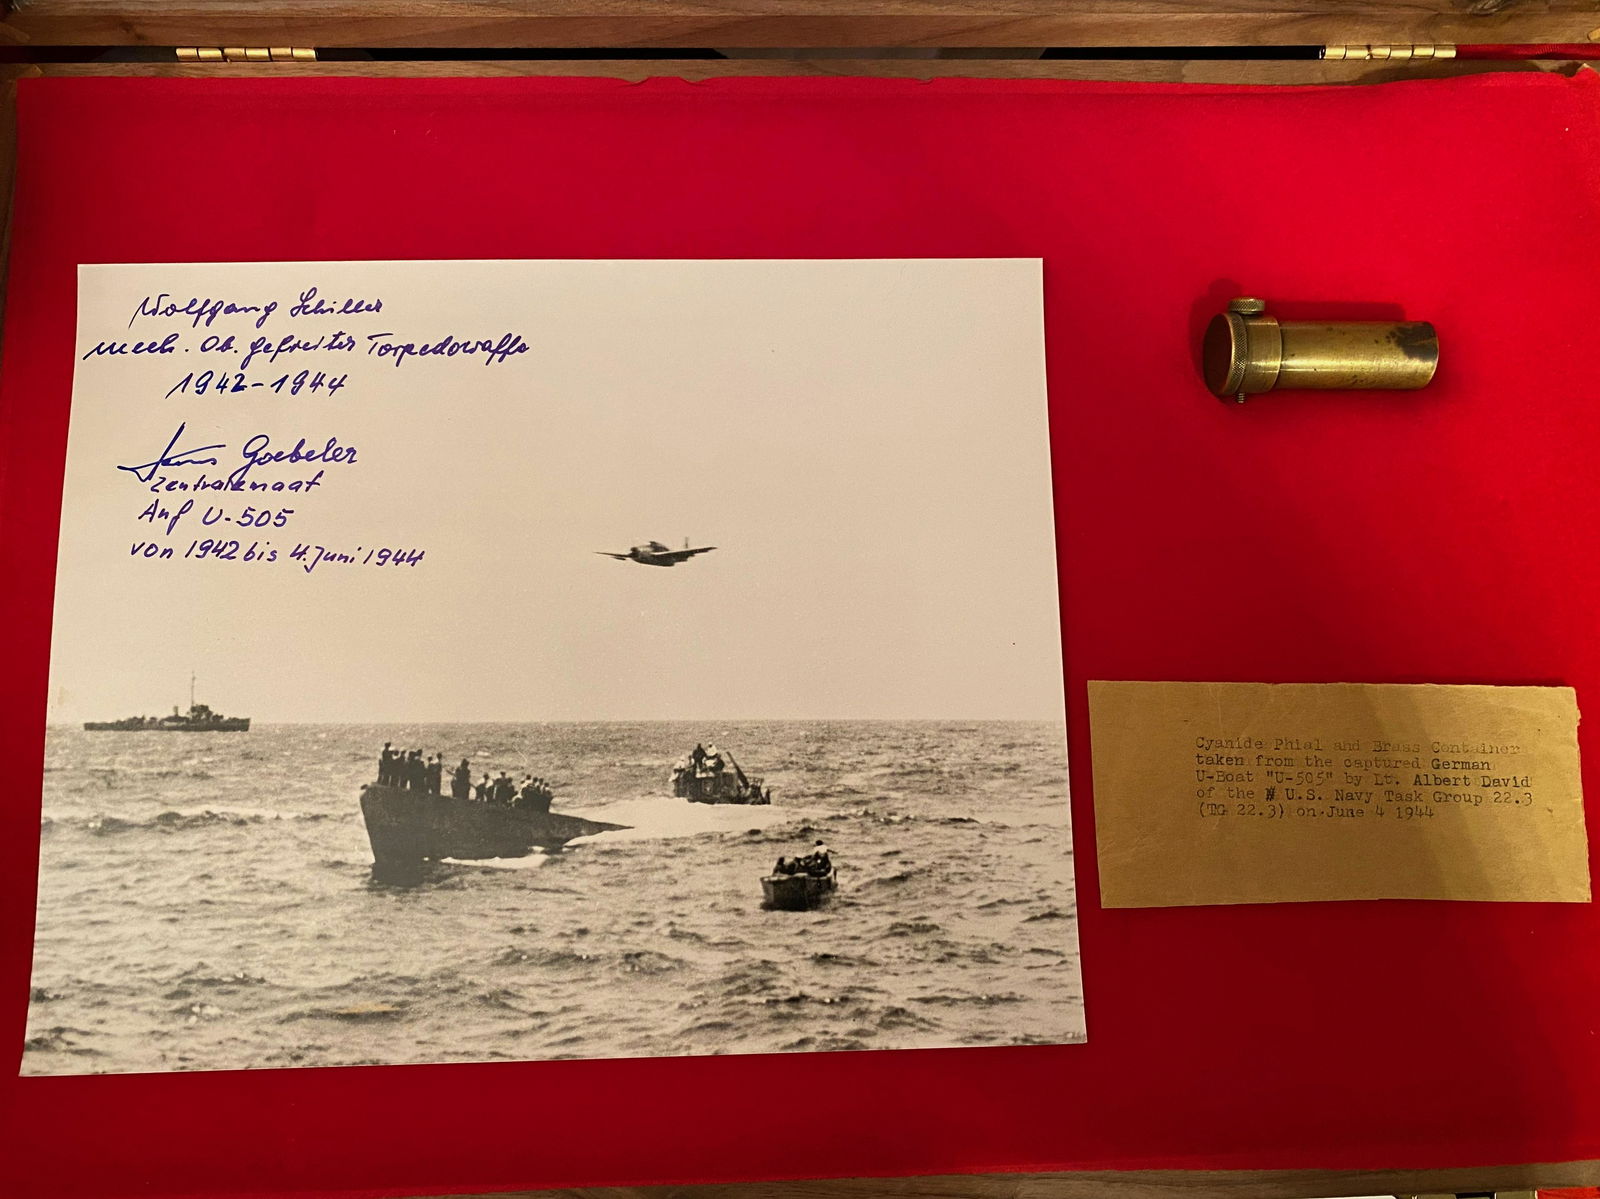 Wolfgang Schiller
mech. Ob. gefreiter Torpedowaffe
1942-1944
Hans Goebeler
Zentralemaat
Auf U-505
von 1942 bis 4. Juni 1944
Cyanide Phial and Brass Container
taken from the captured German
U-Boat "U-505" by Lt. Albert David
of the # U.S. Navy Task Group 22.3
(TG 22.3) on June 4 1944